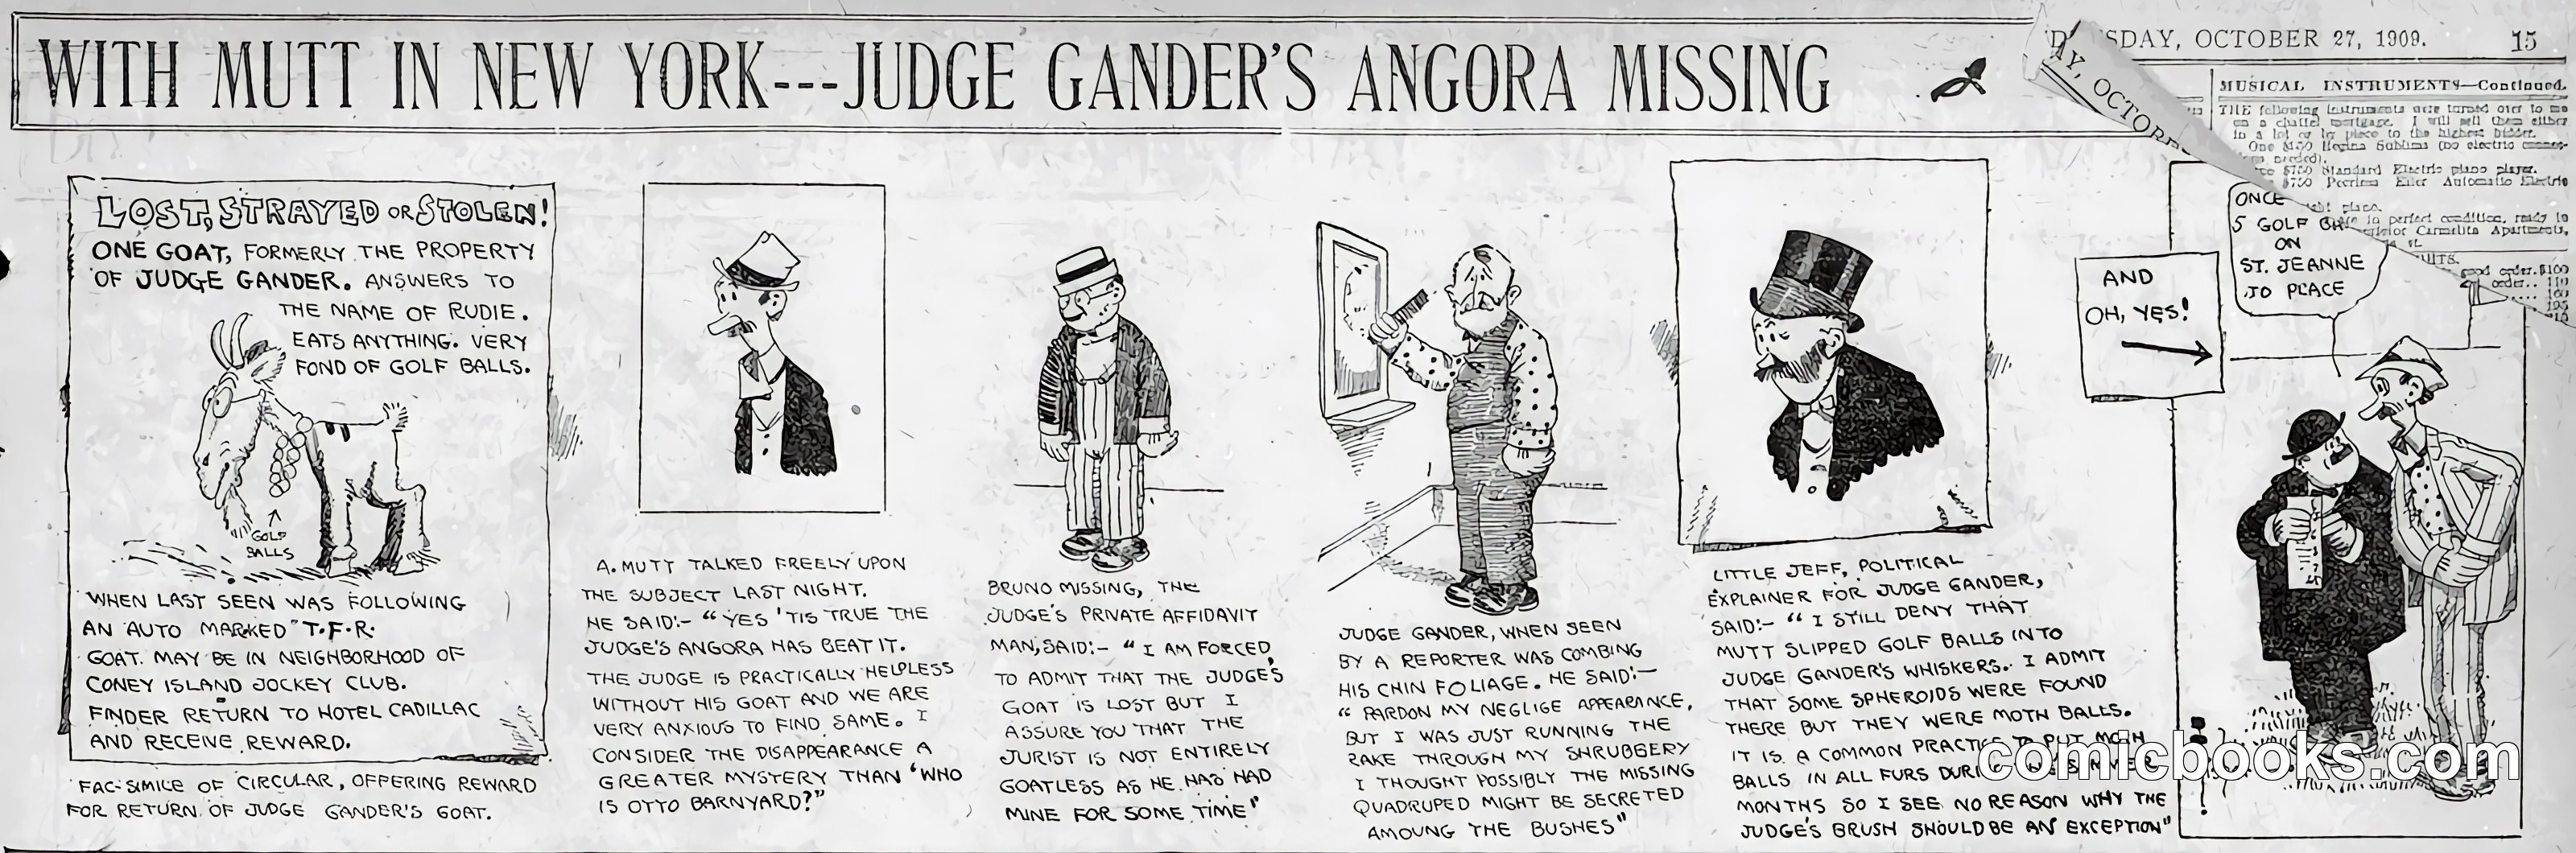 WITH MUTT IN NEW YORK---JUDGE GANDER'S ANGORA MISSING
SDAY, OCTOBER 27, 1909.
15
AY, OCTOBE
MUSICAL INSTRUMENTS—Continued.
THE following instruments were turned over to me
on a chattel mortgage. I will sell them either
in a lot or by piece to the highest bidder.
One $150 Regina Sublima (no electric
needed).
$750 Standard Electric piano player.
$750 Peerless Automatic Electric
place.
in perfect condition, ready to
Carmelita Apartments,
good order. $100
order.. 110
160
195
LOST, STRAYED OR STOLEN!
ONE GOAT, FORMERLY THE PROPERTY
OF JUDGE GANDER. ANSWERS TO
THE NAME OF RUDIE.
EATS ANYTHING. VERY
FOND OF GOLF BALLS.
GOLF
BALLS
WHEN LAST SEEN WAS FOLLOWING
AN AUTO MARKED "T.F.R.
GOAT. MAY BE IN NEIGHBORHOOD OF
CONEY ISLAND JOCKEY CLUB.
FINDER RETURN TO HOTEL CADILLAC
AND RECEIVE REWARD.
FAC-SIMILE OF CIRCULAR, OFFERING REWARD
FOR RETURN OF JUDGE GANDER'S GOAT.
A. MUTT TALKED FREELY UPON
THE SUBJECT LAST NIGHT.
HE SAID:- "YES 'TIS TRUE THE
JUDGE'S ANGORA HAS BEAT IT.
THE JUDGE IS PRACTICALLY HELPLESS
WITHOUT HIS GOAT AND WE ARE
VERY ANXIOUS TO FIND SAME. I
CONSIDER THE DISAPPEARANCE A
GREATER MYSTERY THAN 'WHO
IS OTTO BARNYARD?"
BRUNO MISSING, THE
JUDGE'S PRIVATE AFFIDAVIT
MAN, SAID:- "I AM FORCED
TO ADMIT THAT THE JUDGE'S
GOAT IS LOST BUT I
ASSURE YOU THAT THE
JURIST IS NOT ENTIRELY
GOATLESS AS HE HAS HAD
MINE FOR SOME TIME"
JUDGE GANDER, WHEN SEEN
BY A REPORTER WAS COMBING
HIS CHIN FOLIAGE. HE SAID:—
"PARDON MY NEGLIGE APPEARANCE,
BUT I WAS JUST RUNNING THE
RAKE THROUGH MY SHRUBBERY
I THOUGHT POSSIBLY THE MISSING
QUADRUPED MIGHT BE SECRETED
AMOUNG THE BUSHES"
LITTLE JEFF, POLITICAL
EXPLAINER FOR JUDGE GANDER,
SAID:- "I STILL DENY THAT
MUTT SLIPPED GOLF BALLS INTO
JUDGE GANDER'S WHISKERS. I ADMIT
THAT SOME SPHEROIDS WERE FOUND
THERE BUT THEY WERE MOTH BALLS.
IT IS A COMMON PRACTICE TO PUT MOTH
BALLS IN ALL FURS DURING THE SUMMER
MONTHS SO I SEE NO REASON WHY THE
JUDGE'S BRUSH SHOULD BE AN EXCEPTION"
AND
OH, YES!
ONCE
5 GOLF BA
ON
ST. JEANNE
JO PLACE
comicbooks.com